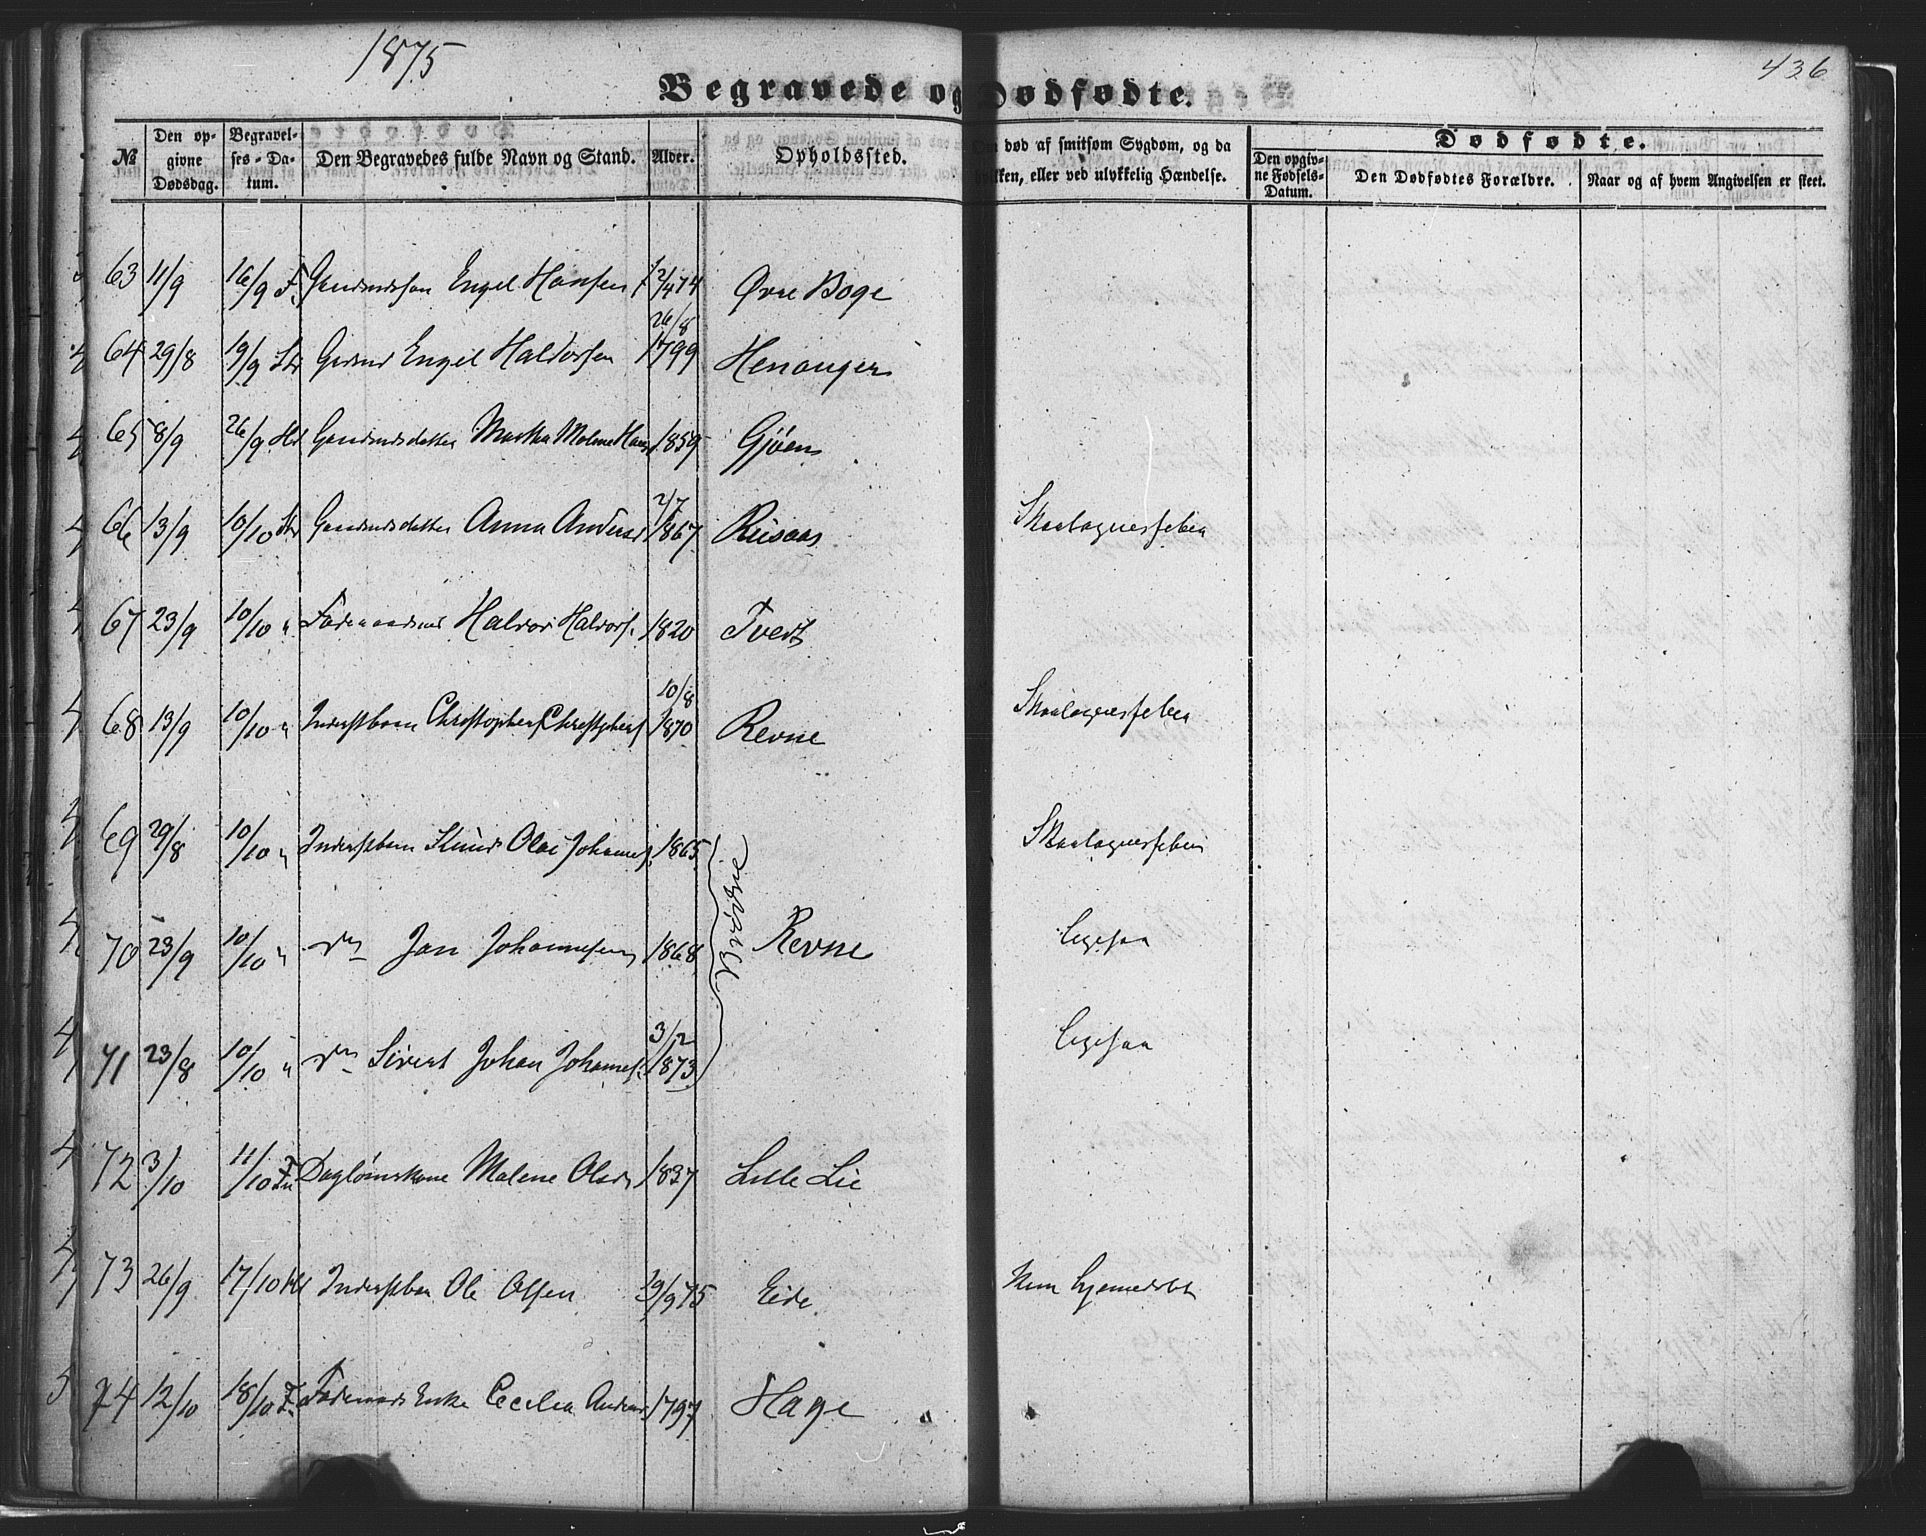 1875
436
Begravede og Dødfødte.
№ Den opgivne Dødsdag. Begravelses-Datum. Den Begravedes fulde Navn og Stand. Alder. Opholdssted. død af smitsom Sygdom, og da eller ved ulykkelig Hændelse. Dødfødte. Den opgivne Fødsels-Datum. Den Dødfødtes Forældre. Naar og af hvem Angivelsen er skeet.
63 11/9 16/9 F. Gaardmdssøn Engel Hansen 12/4 74 Øvre Boge
64 29/8 19/9 Str Gaardmd Engel Haldorsen 26/8 1799 Henanger
65 8/9 26/9 Gaardmdsdatter Martha Malene Hans 1859 Gjøen
66 13/9 10/10 Str Gaardmdsdatter Anna Andersd 2/7 1867 Risaas Skarlagensfeber
67 23/9 10/10 " Føderaadsmd Halvor Halvors. 1820 Tveit
68 13/9 10/10 " Inderstbarn Christopher Christophers 10/8 1870 Revne Skarlagensfeber
69 29/8 10/10 " Inderstbarn Olai Johannes. 1865 Skarlagensfeber
70 23/9 10/10 " do Jan Johannesen 1868 Brødre Revne ligesaa
71 23/8 10/10 " do Sivert Johan Johannes. 3/2 1873 ligesaa
72 3/10 11/10 Daglønskone Malene Olsd 1837 Lille Lie
73 26/9 17/10 Inderstbarn Ole Olsen 19/9 75 Eide Kun hjemmedøbt
74 12/10 18/10 F. Føderaads Enke Cecilia Andersd. 1797 Hage